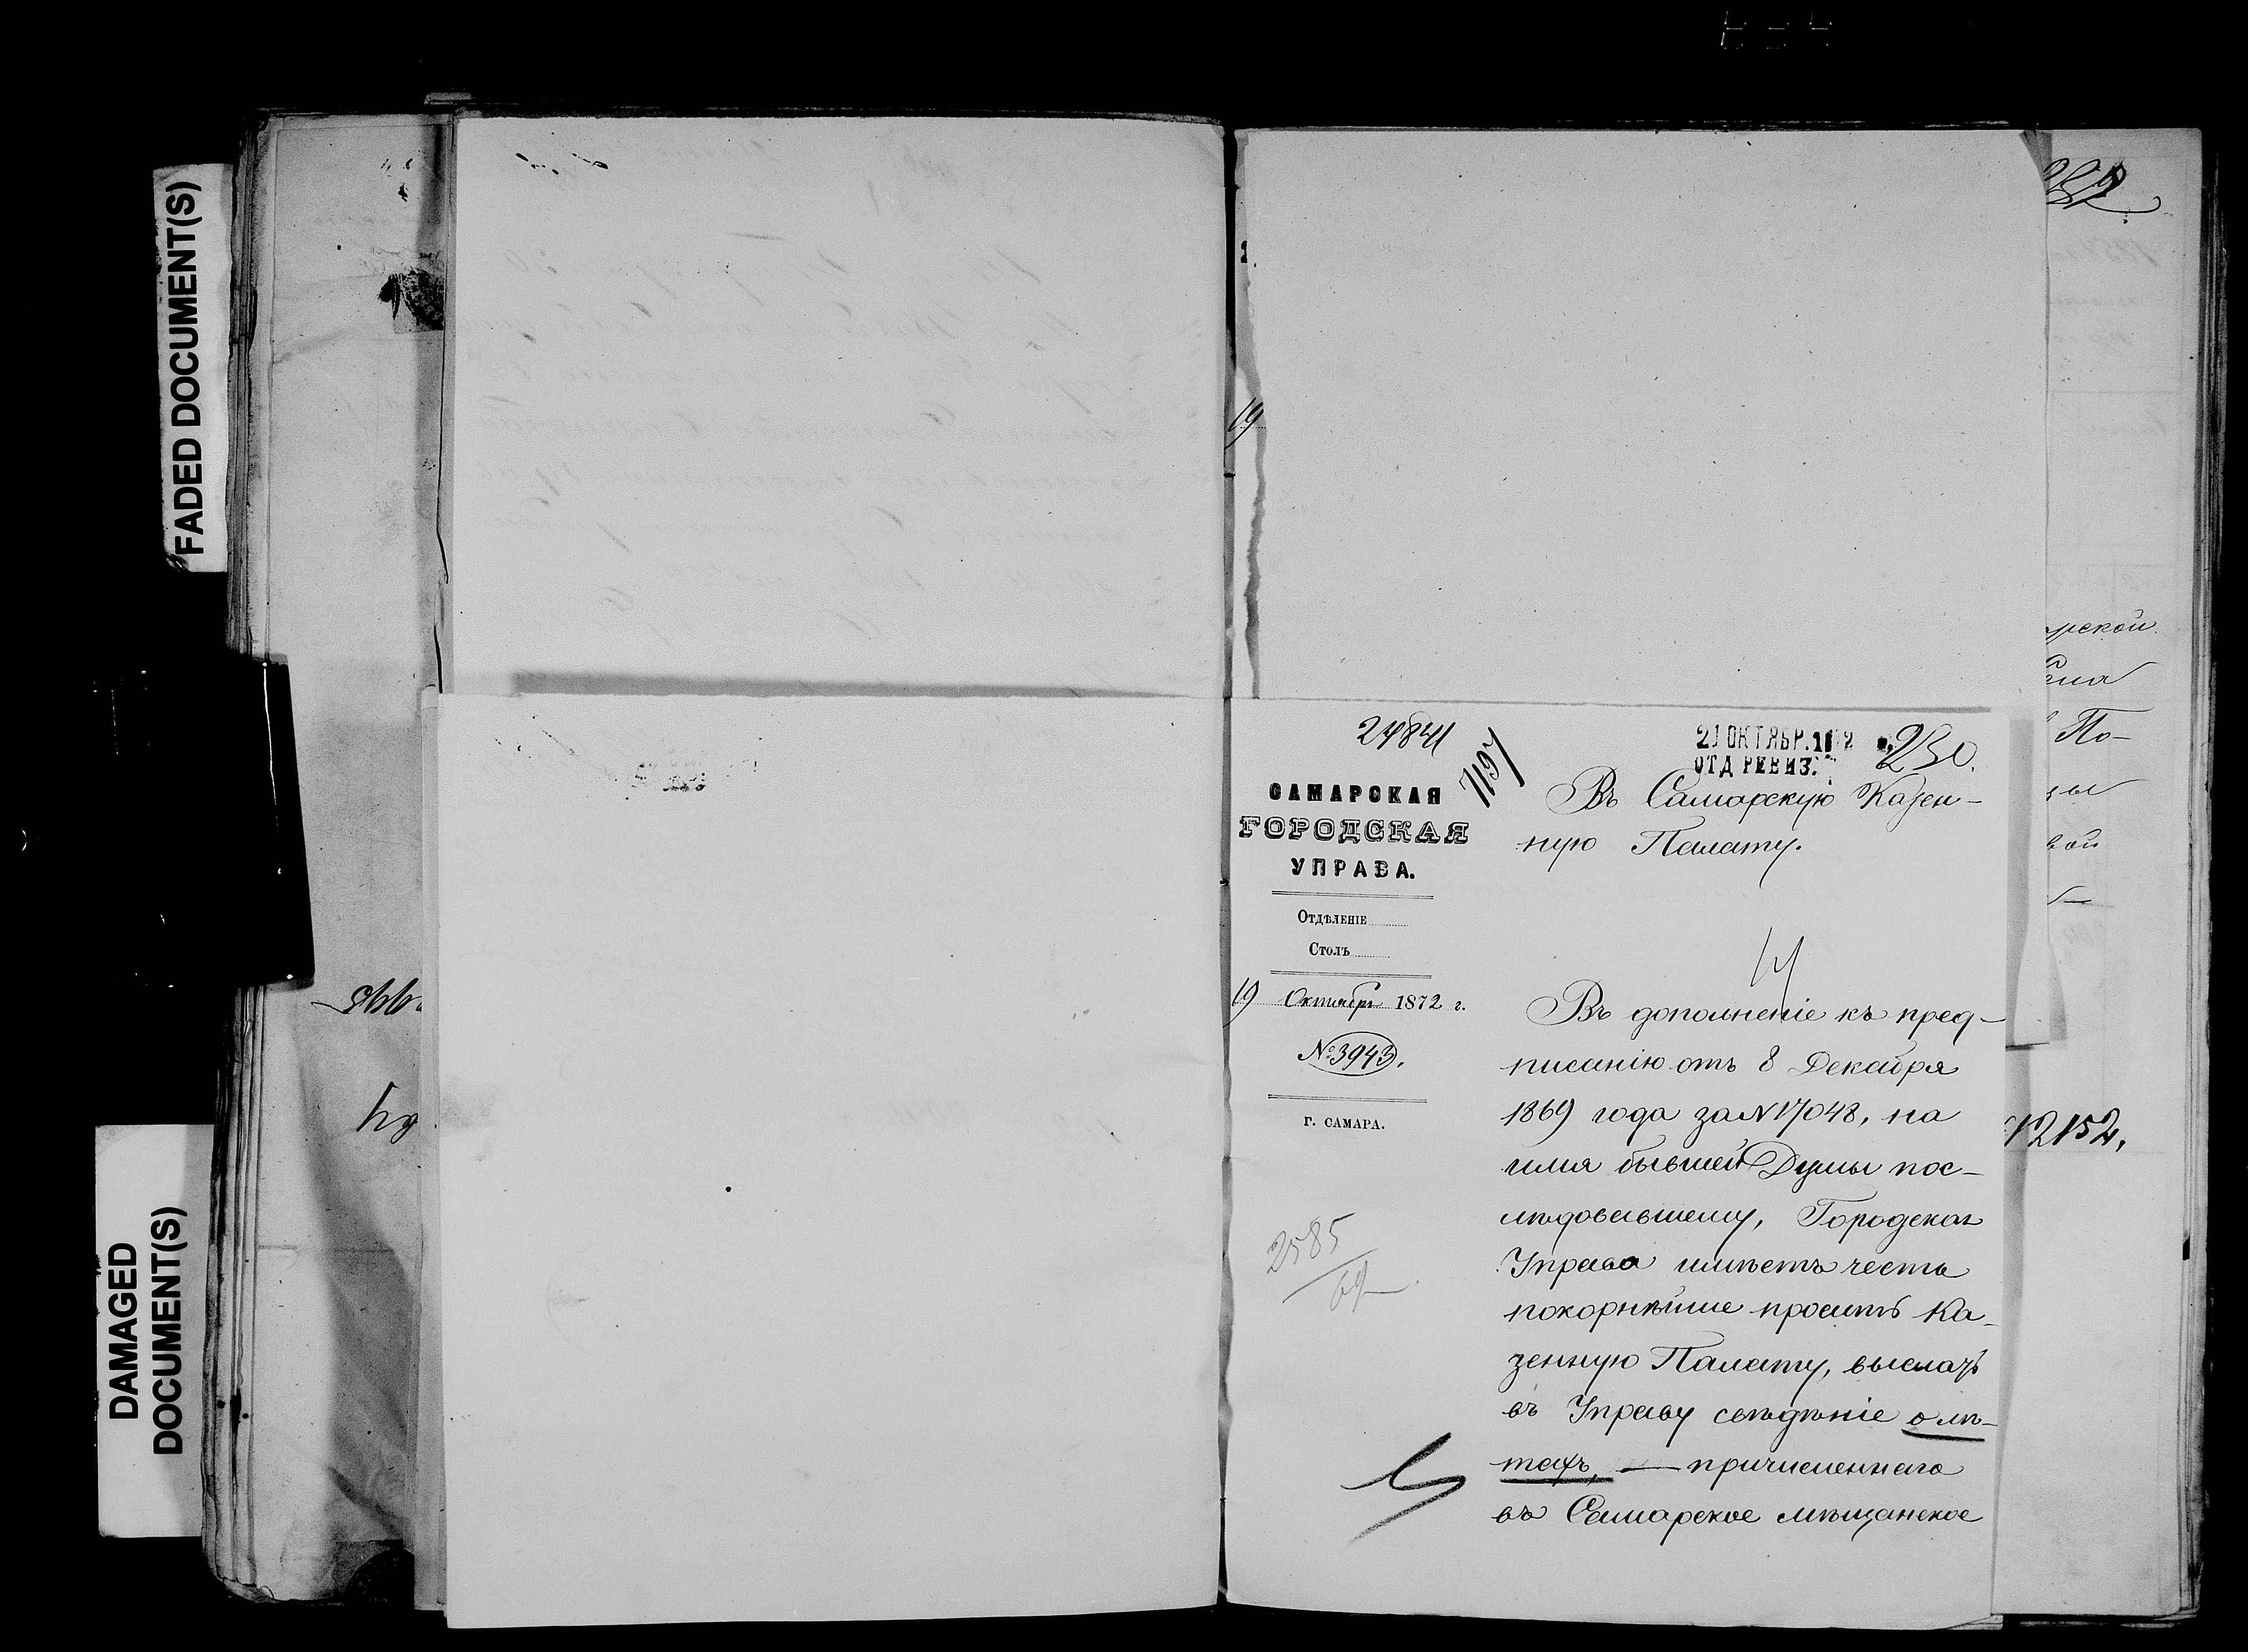 FADED DOCUMENT(S)
DAMAGED
DOCUMENT(S)
19
24841
7197
21 ОКТЯБР. 1872
ОТД РЕВИЗ.
250.
САМАРСКАЯ
ГОРОДСКАЯ
УПРАВА.
Отдѣленіе
Столъ
19 Октября 1872 г.
№ 3943.
г. САМАРА.
2585
69
Въ Самарскую Казен-
ную Палату.
Въ дополненіе къ пред-
писанію отъ 8 Декабря
1869 года за N 17048, на
имя бывшей Думы пос-
лѣдовавшему, Городская
Управа имѣетъ честь
покорнѣйше проситъ Ка-
зенную Палату, выслать
въ Управу свѣдѣніе о лѣ-
тахъ, — причисленнаго
въ Самарское мѣщанское
рской
По-
вой
12152.